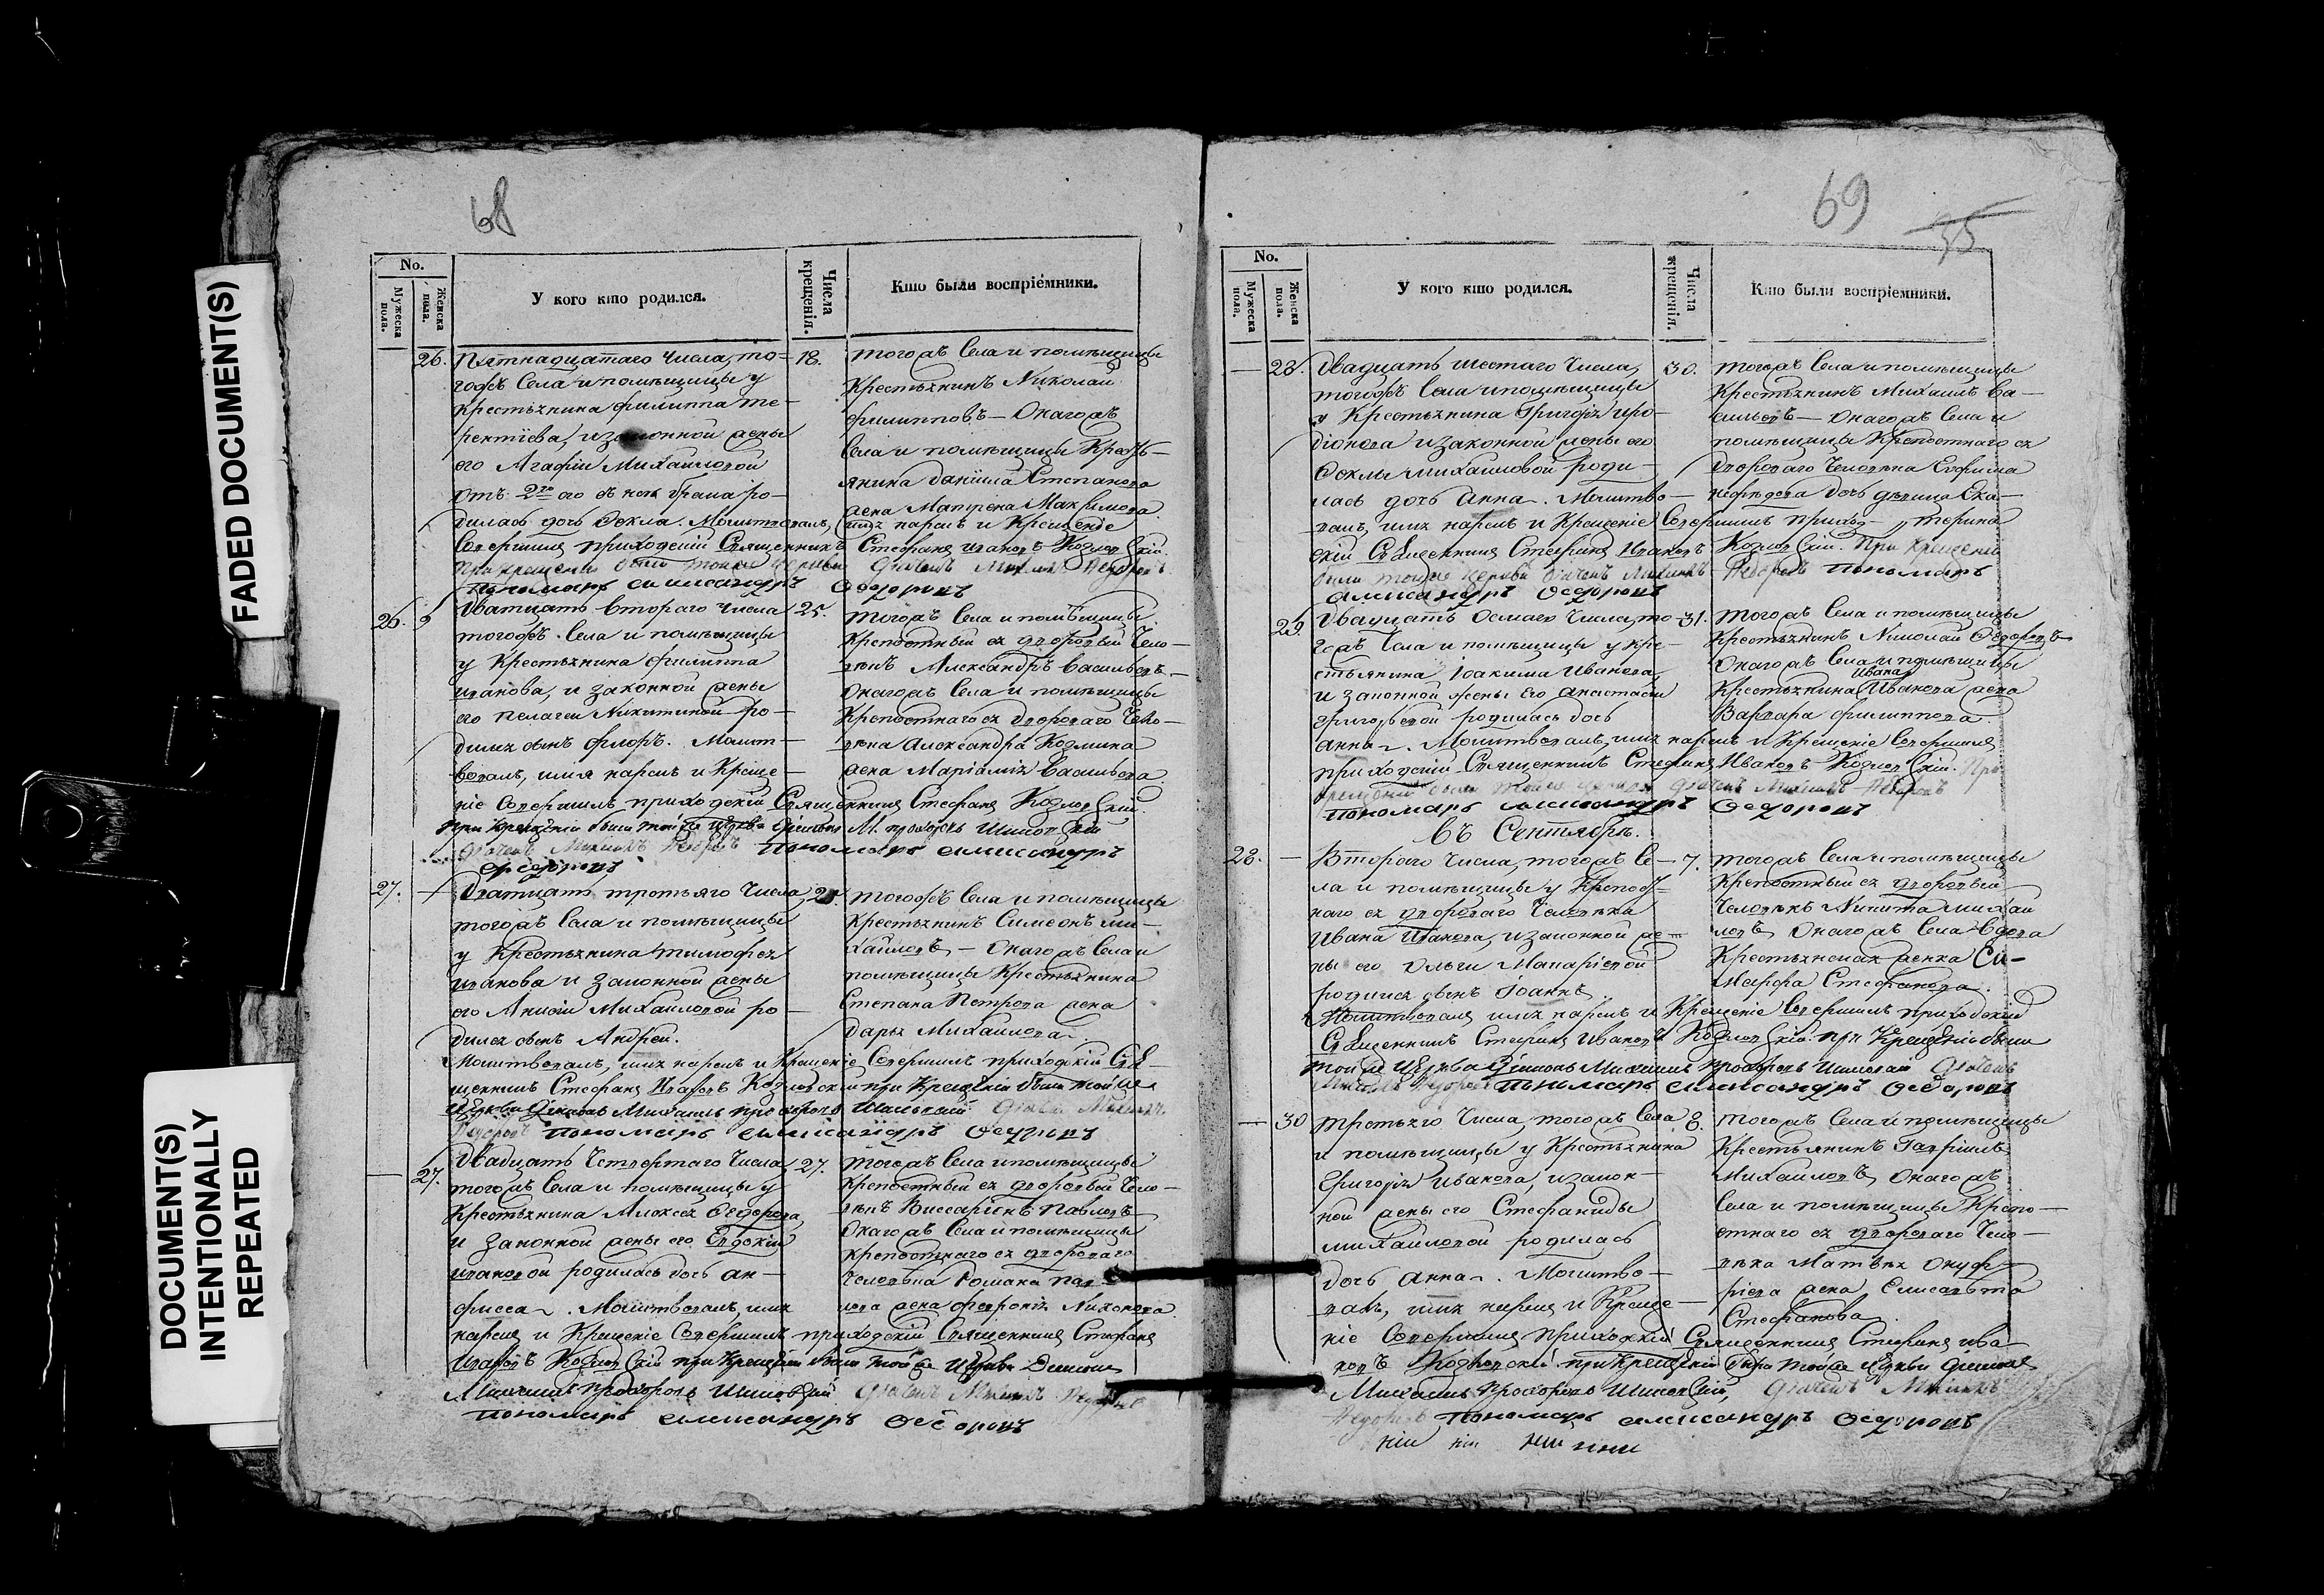 FADED DOCUMENT(S)
DOCUMENT(S)
INTENTIONALLY
REPEATED
68
No.
Мужеска пола.
Женска пола.
У кого кто родился.
Числа крещенія.
Кто были воспріемники.
26. Пятнадцатаго числа, то- 18.
гожъ села и помѣщицы у
крестьянина Филиппа Те-
рентіева, и законной жены
его Агафіи Михайловой
родилась дочь Фекла. Молитвовалъ, имя нарекъ и крещеніе
совершилъ приходскій священникъ Стефанъ Ивановъ Козловскій.
При крещеніи были тойже церкви дьячекъ Михаилъ Федоровъ
пономарь Александръ Федоровъ
тогожъ села и помѣщицы
крестьянинъ Николай
Филипповъ — онагожъ
села и помѣщицы кресть-
янина Даніила Степанова
жена Матрена Максимова
26. Дватцать втораго числа 25.
тогожъ села и помѣщицы
у крестьянина Филиппа
Иванова, и законной жены
его Пелагеи Никитиной ро-
дился сынъ Флоръ. Молит-
вовалъ, имя нарекъ и креще-
ніе совершилъ приходскій священникъ Стефанъ Козловскій.
при крещеніи были тойже церкви діаконъ М. Прохоровъ
дьячекъ Михаилъ Федоровъ пономарь Александръ
Федоровъ
тогожъ села и помѣщицы
крепостный ея дворовый чело-
вѣкъ Александръ Васильевъ —
онагожъ села и помѣщицы
крепостнаго ея двороваго чело-
вѣка Александра Козмина
жена Маріамія Васильева
27. — Дватцать третьяго числа, 28.
тогожъ села и помѣщицы
у крестьянина Тимофея
Иванова и законной жены
его Анисіи Михайловой ро-
дился сынъ Андрей.
Молитвовалъ, имя нарекъ и крещеніе совершилъ приходскій свя-
щенникъ Стефанъ Ивановъ Козловскій при крещеніи были тойже
церкви діаконъ Михаилъ Прохоровъ дьячекъ Михаилъ
Федоровъ пономарь Александръ Федоровъ
тогожъ села и помѣщицы
крестьянинъ Симеонъ Ми-
хайловъ — онагожъ села и
помѣщицы крестьянина
Степана Петрова жена
Дарья Михайлова
— 27. Двадцать четвертаго числа, 27.
тогожъ села и помѣщицы у
крестьянина Алексея Федорова,
и законной жены его Евдокіи
Ивановой родилась дочь Ан-
фисса. Молитвовалъ, имя
нарекъ и крещеніе совершилъ приходскій священникъ Стефанъ
Ивановъ Козловскій при крещеніи были тойже церкви діаконъ
Михаилъ Прохоровъ дьячекъ Михаилъ Федоровъ
пономарь Александръ Федоровъ
тогожъ села и помѣщицы
крепостный ея дворовый чело-
вѣкъ Виссаріонъ Павловъ
онагожъ села и помѣщицы
крепостнаго ея двороваго
человѣка Романа Пав-
лова жена Февронія
69
35
No.
Мужеска пола.
Женска пола.
У кого кто родился.
Числа крещенія.
Кто были воспріемники.
— 28. Двадцать шестаго числа, 30.
тогожъ села и помѣщицы
у крестьянина Григорія Иро-
діонова и законной жены его
Феклы Михайловой роди-
лась дочь Анна. Молитво-
валъ, имя нарекъ и крещеніе совершилъ приход-
скій священникъ Стефанъ Ивановъ Козловскій. При крещеніи
были тойже церкви дьячекъ Михаилъ Федоровъ пономарь
Александръ Федоровъ
тогожъ села и помѣщицы
крестьянинъ Михаилъ Ва-
сильевъ — онагожъ села и
помѣщицы крепостнаго ея
двороваго человѣка Ефима
дочь дѣвица Ека-
терина
29. Двадцать осмаго числа, то- 31.
гожъ села и помѣщицы у кре-
стьянина Іоакима Иванова,
и законной жены его Анастасіи
Григорьевой родилась дочь
Анна. Молитвовалъ, имя нарекъ и крещеніе совершилъ
приходскій священникъ Стефанъ Ивановъ Козловскій. При
крещеніи были тойже церкви дьячекъ Михаилъ Федоровъ
пономарь Александръ Федоровъ
тогожъ села и помѣщицы
крестьянинъ Николай Федоровъ
онагожъ села и помѣщицы
Ивана
крестьянина Иванова жена
Варвара Филиппова
Въ Сентябрѣ.
28. — Втораго числа, тогожъ се- 7.
ла и помѣщицы у крепост-
наго ея двороваго человѣка
Ивана Иванова, и законной же-
ны его Ольги Макаріевой
родился сынъ Іоаннъ
Молитвовалъ имя нарекъ и крещеніе совершилъ приходскій
священникъ Стефанъ Ивановъ Козловскій при крещеніи были
тойже церкви діаконъ Михаилъ Прохоровъ дьячекъ
Михаилъ Федоровъ пономарь Александръ Федоровъ
тогожъ села и помѣщицы
крепостный ея дворовый
человѣкъ Никита Михай
ловъ онагожъ села вдова
крестьянская женка
Марфа Стефанова
— 30 Третьяго числа, тогожъ села 8.
и помѣщицы у крестьянина
Григорія Иванова, и закон-
ной жены его Стефаниды
Михайловой родилась
дочь Анна. Молитво-
валъ, имя нарекъ и креще-
ніе совершилъ приходскій священникъ Стефанъ Ива-
новъ Козловскій при крещеніи были тойже церкви діаконъ
Михаилъ Прохоровъ дьячекъ Михаилъ
Федоровъ пономарь Александръ Федоровъ
тогожъ села и помѣщицы
крестьянинъ Гавріилъ
Михайловъ онагожъ
села и помѣщицы крепо-
стнаго ея двороваго чело-
вѣка Матвѣя Онуф-
ріева жена Елисавета
Стефанова